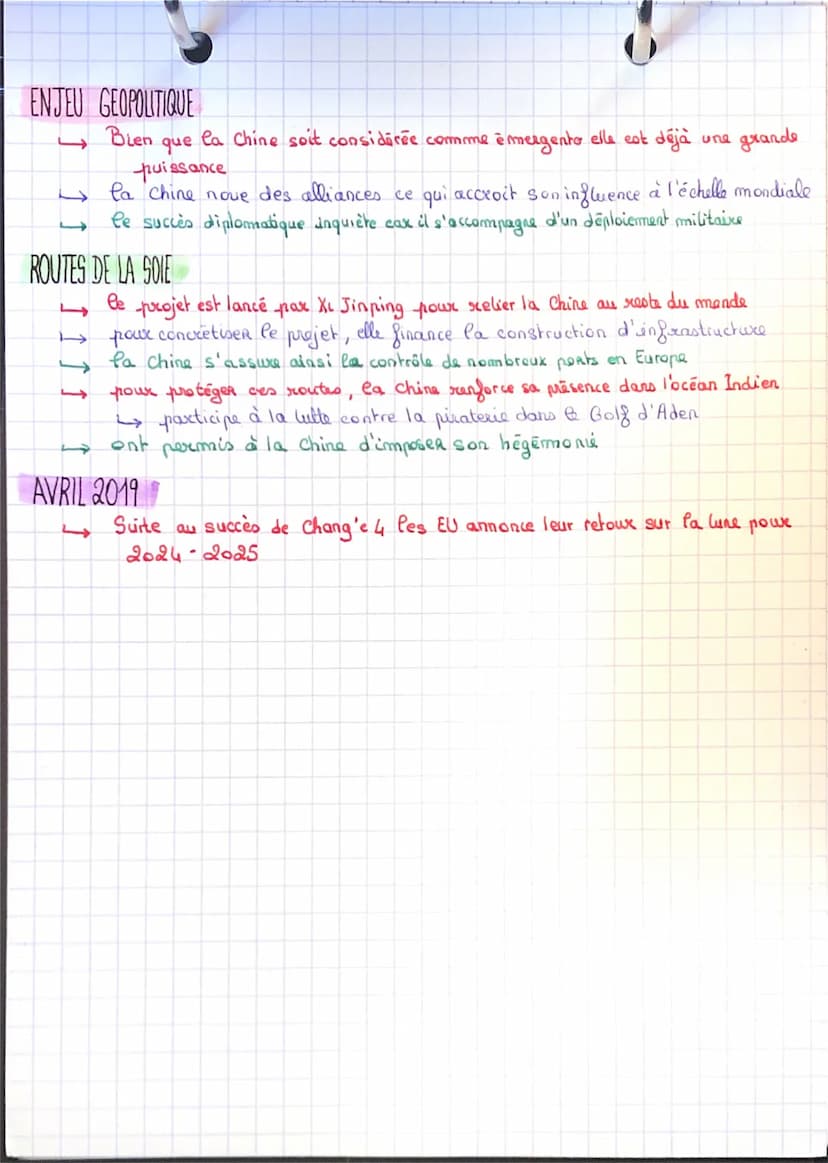 ENJEU GEOPOLITIQUE
↳ Bien que la Chine soit considérée comme émergente elle est déjà une grande
puissance
↳ la Chine noue des alliances ce qui accroit son influence à l'échelle mondiale
↳ le succès diplomatique inquiète car il s'accompagne d'un déploiement militaire
ROUTES DE LA SOIE
↳ le projet est lancé par Xi Jinping pour relier la Chine au reste du monde
↳ pour concrétiser le projet, elle finance la construction d'infrastructure
↳ la Chine s'assure ainsi la contrôle de nombreux ponts en Europe
↳ pour protéger ces routes, la Chine renforce sa présence dans l'océan Indien
↳ participe à la lutte contre la piraterie dans le Golf d'Aden
↳ ont permis à la Chine d'imposer son hégémonie
AVRIL 2019
↳ Suite au succès de Chang'e 4 les EU annonce leur retour sur la lune pour
2024-2025